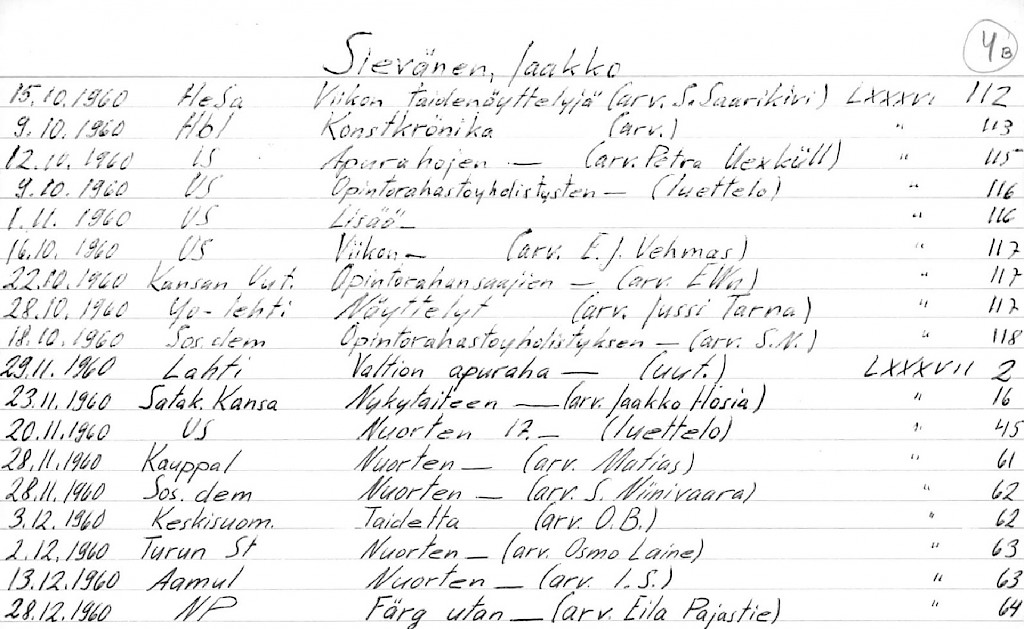 4B
Sievänen, Jaakko
15.10.1960 HeSa Viikon taidenäyttelyjä (arv. S. Saarikivi) LXXXVI 112
9.10.1960 Hbl Konstkrönika (arv.) " 113
12.10.1960 IS Apurahojen — (arv. Petra Uexküll) " 115
9.10.1960 US Opintorahastoyhdistysten — (luettelo) " 116
1.11.1960 US Lisää — " 116
16.10.1960 US Viikon — (arv. E.J. Vehmas) " 117
22.10.1960 Kansan Uut. Opintorahansaajien — (arv. EWn) " 117
28.10.1960 Yo-lehti Näyttelyt (arv. Jussi Tarna) " 117
18.10.1960 Sos.dem Opintorahastoyhdistyksen — (arv. S.N.) " 118
29.11.1960 Lahti Valtion apuraha — (uut.) LXXXVII 2
23.11.1960 Satak. Kansa Nykytaiteen — (arv. Jaakko Hosia) " 16
20.11.1960 US Nuorten 17. — (luettelo) " 45
28.11.1960 Kauppal Nuorten — (arv. Matias) " 61
28.11.1960 Sos.dem Nuorten — (arv. S. Niinivaara) " 62
3.12.1960 Keskisuom. Taidetta (arv. O.B.) " 62
2.12.1960 Turun St Nuorten — (arv. Osmo Laine) " 63
13.12.1960 Aamul Nuorten — (arv. I.S.) " 63
28.12.1960 NP Färg utan — (arv. Eila Pajastie) " 64